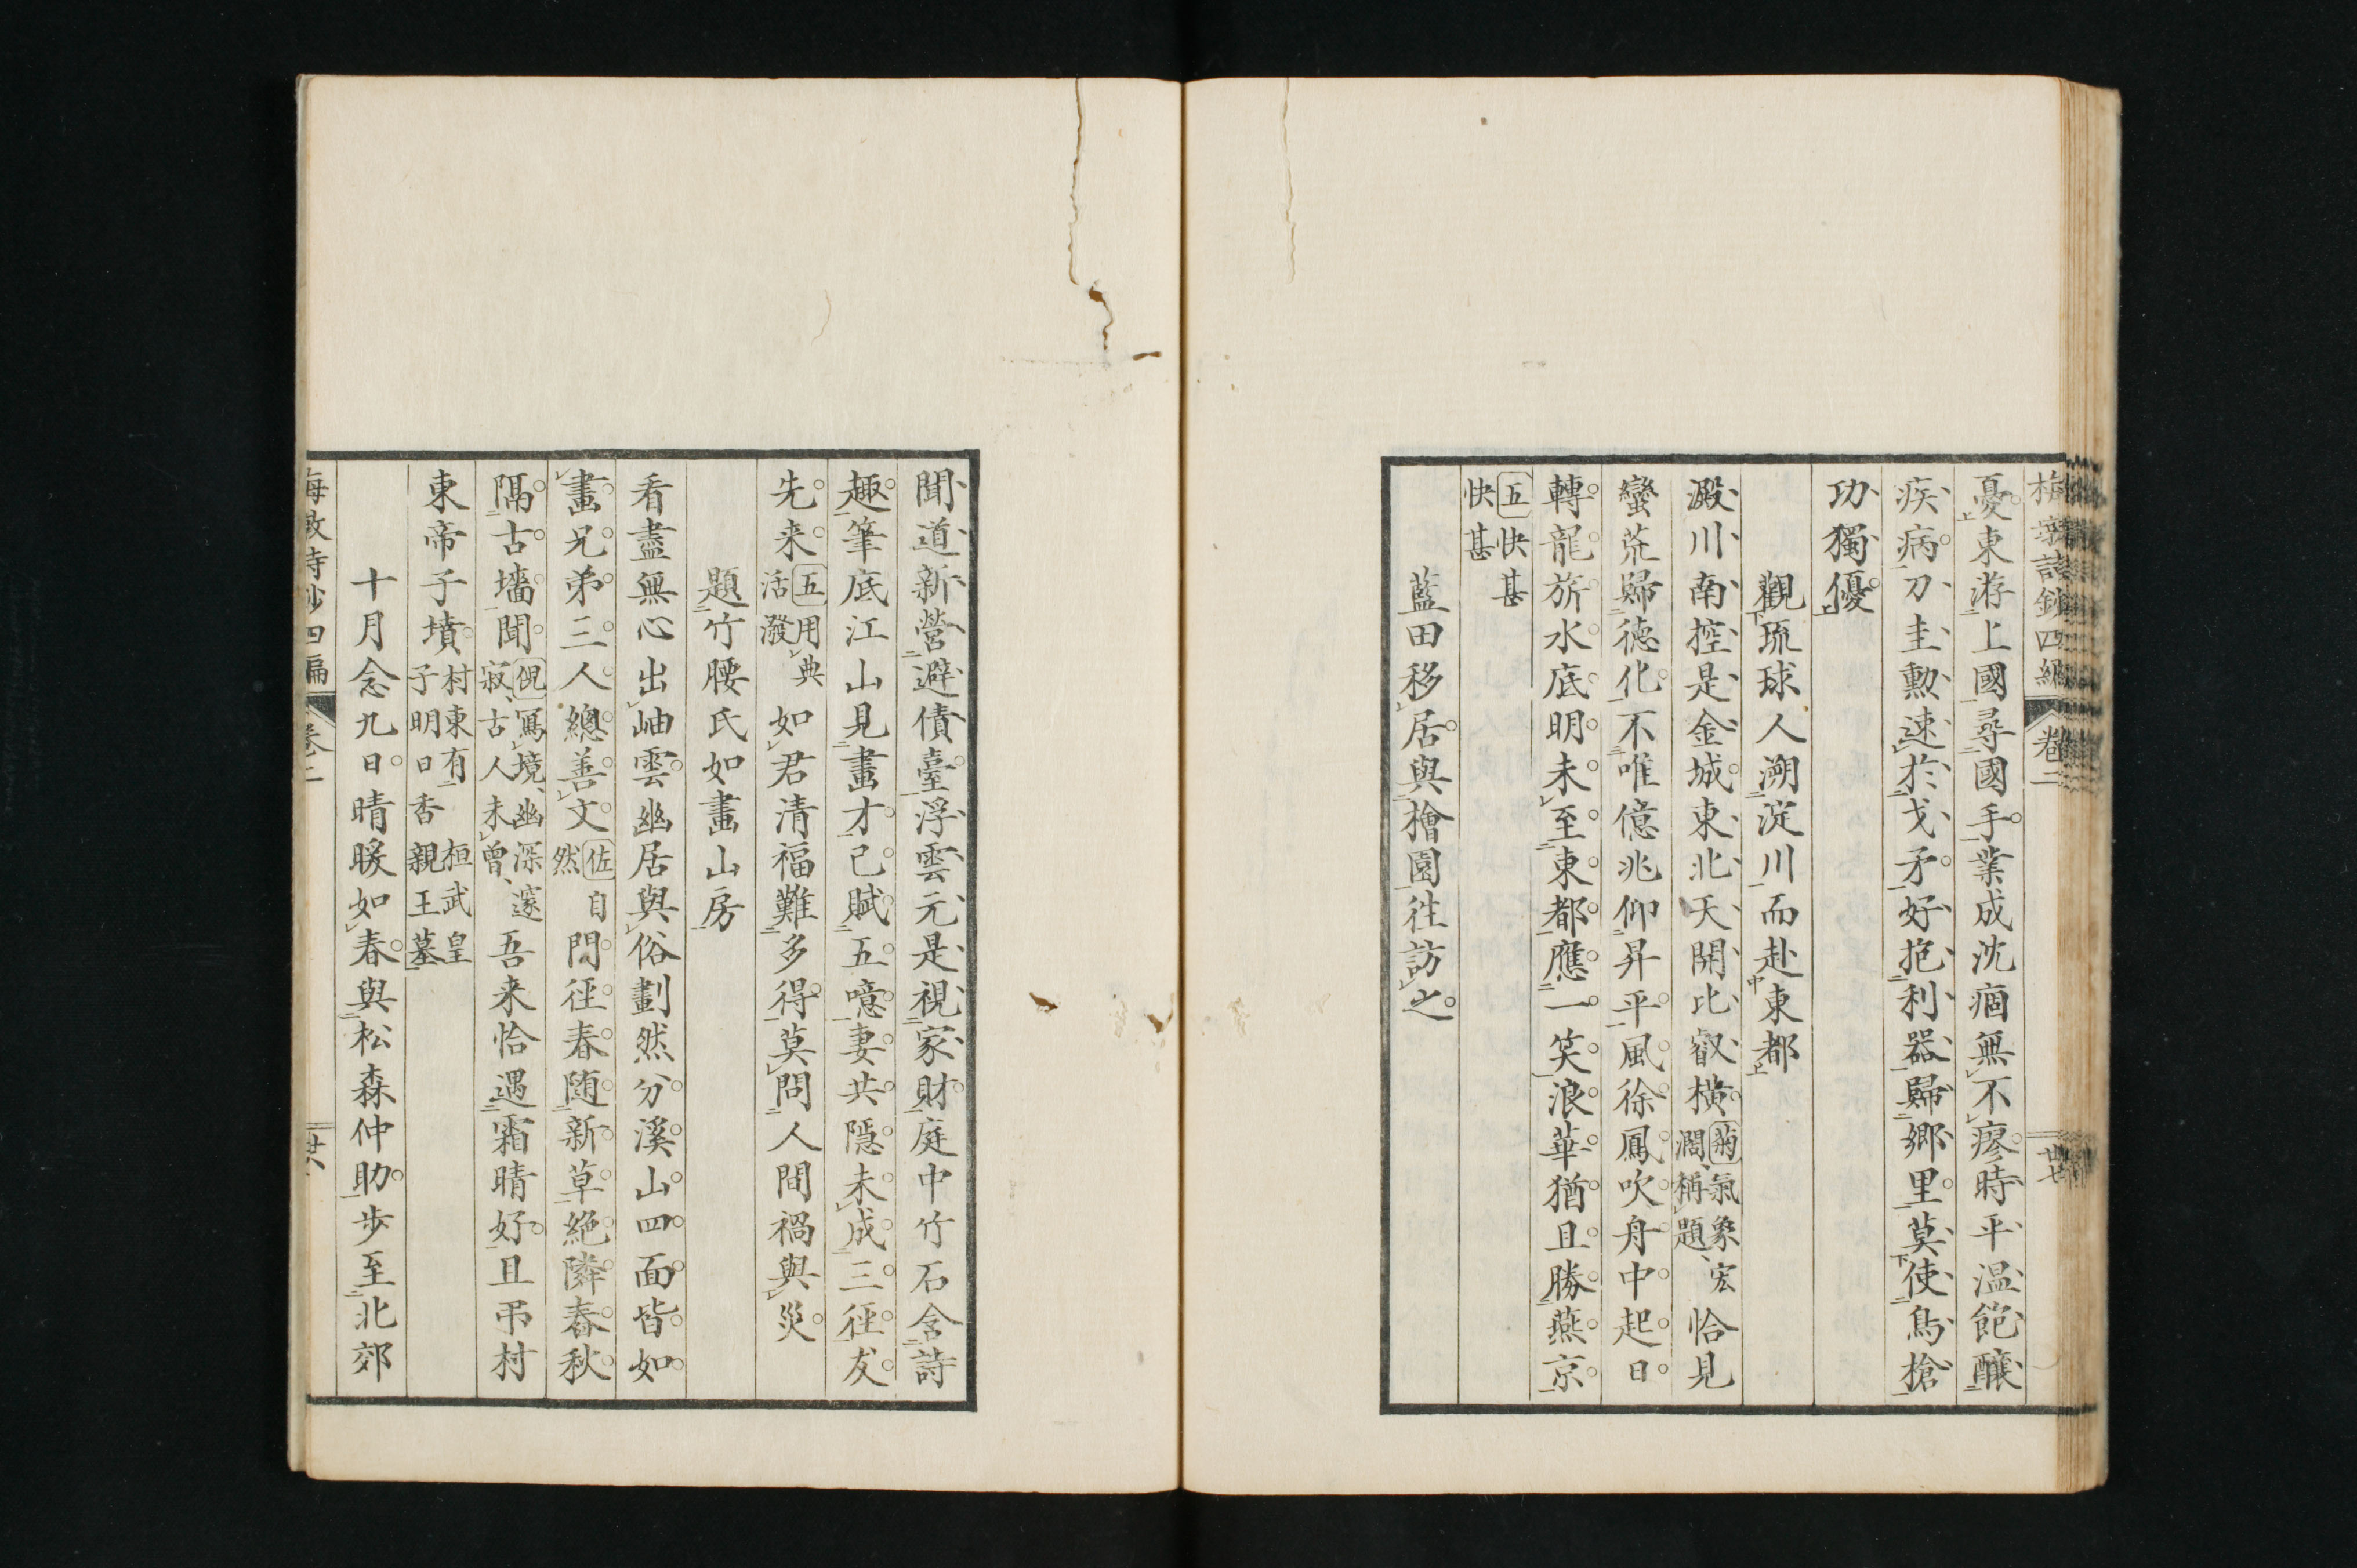 梅墩詩鈔四編 卷二 廿七
憂東游上國尋國手業成沈痼無不瘳時平温飽釀
疾病刀圭勲速於戈矛好抱利器歸郷里莫使鳥槍
功獨優
觀琉球人溯淀川而赴東都
澱川南控是金城東北天開比叡横 菊氣象宏濶稱題 恰見
蠻荒歸徳化不唯億兆仰昇平風徐鳳吹舟中起日
轉龍旂水底明未至東都應一笑浪華猶且勝燕京
五快甚快甚
藍田移居與檜園往訪之
聞道新營避債臺浮雲元是視家財庭中竹石含詩
趣筆底江山見畫才已賦五噫妻共隱未成三徑友
先来 五用典活潑 如君清福難多得莫問人間禍與災
題竹腰氏如畫山房
看盡無心出岫雲幽居與俗劃然分溪山四面皆如
畫兄弟三人總善文 佐自然 門徑春随新草絶隣舂秋
隔古墻聞 俔寫境幽深寂古人未曾邃 吾来恰遇霜晴好且弔村
東帝子墳 村東有桓武皇子明日香親王墓
十月念九日晴暖如春與松森仲助歩至北郊
梅墩詩鈔四編 卷二